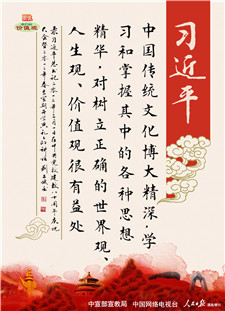 价值观
习近平
中国传统文化博大精深,学
习和掌握其中的各种思想
精华,对树立正确的世界观、
人生观、价值观很有益处
中宣部宣教局
中国网络电视台
人民日报